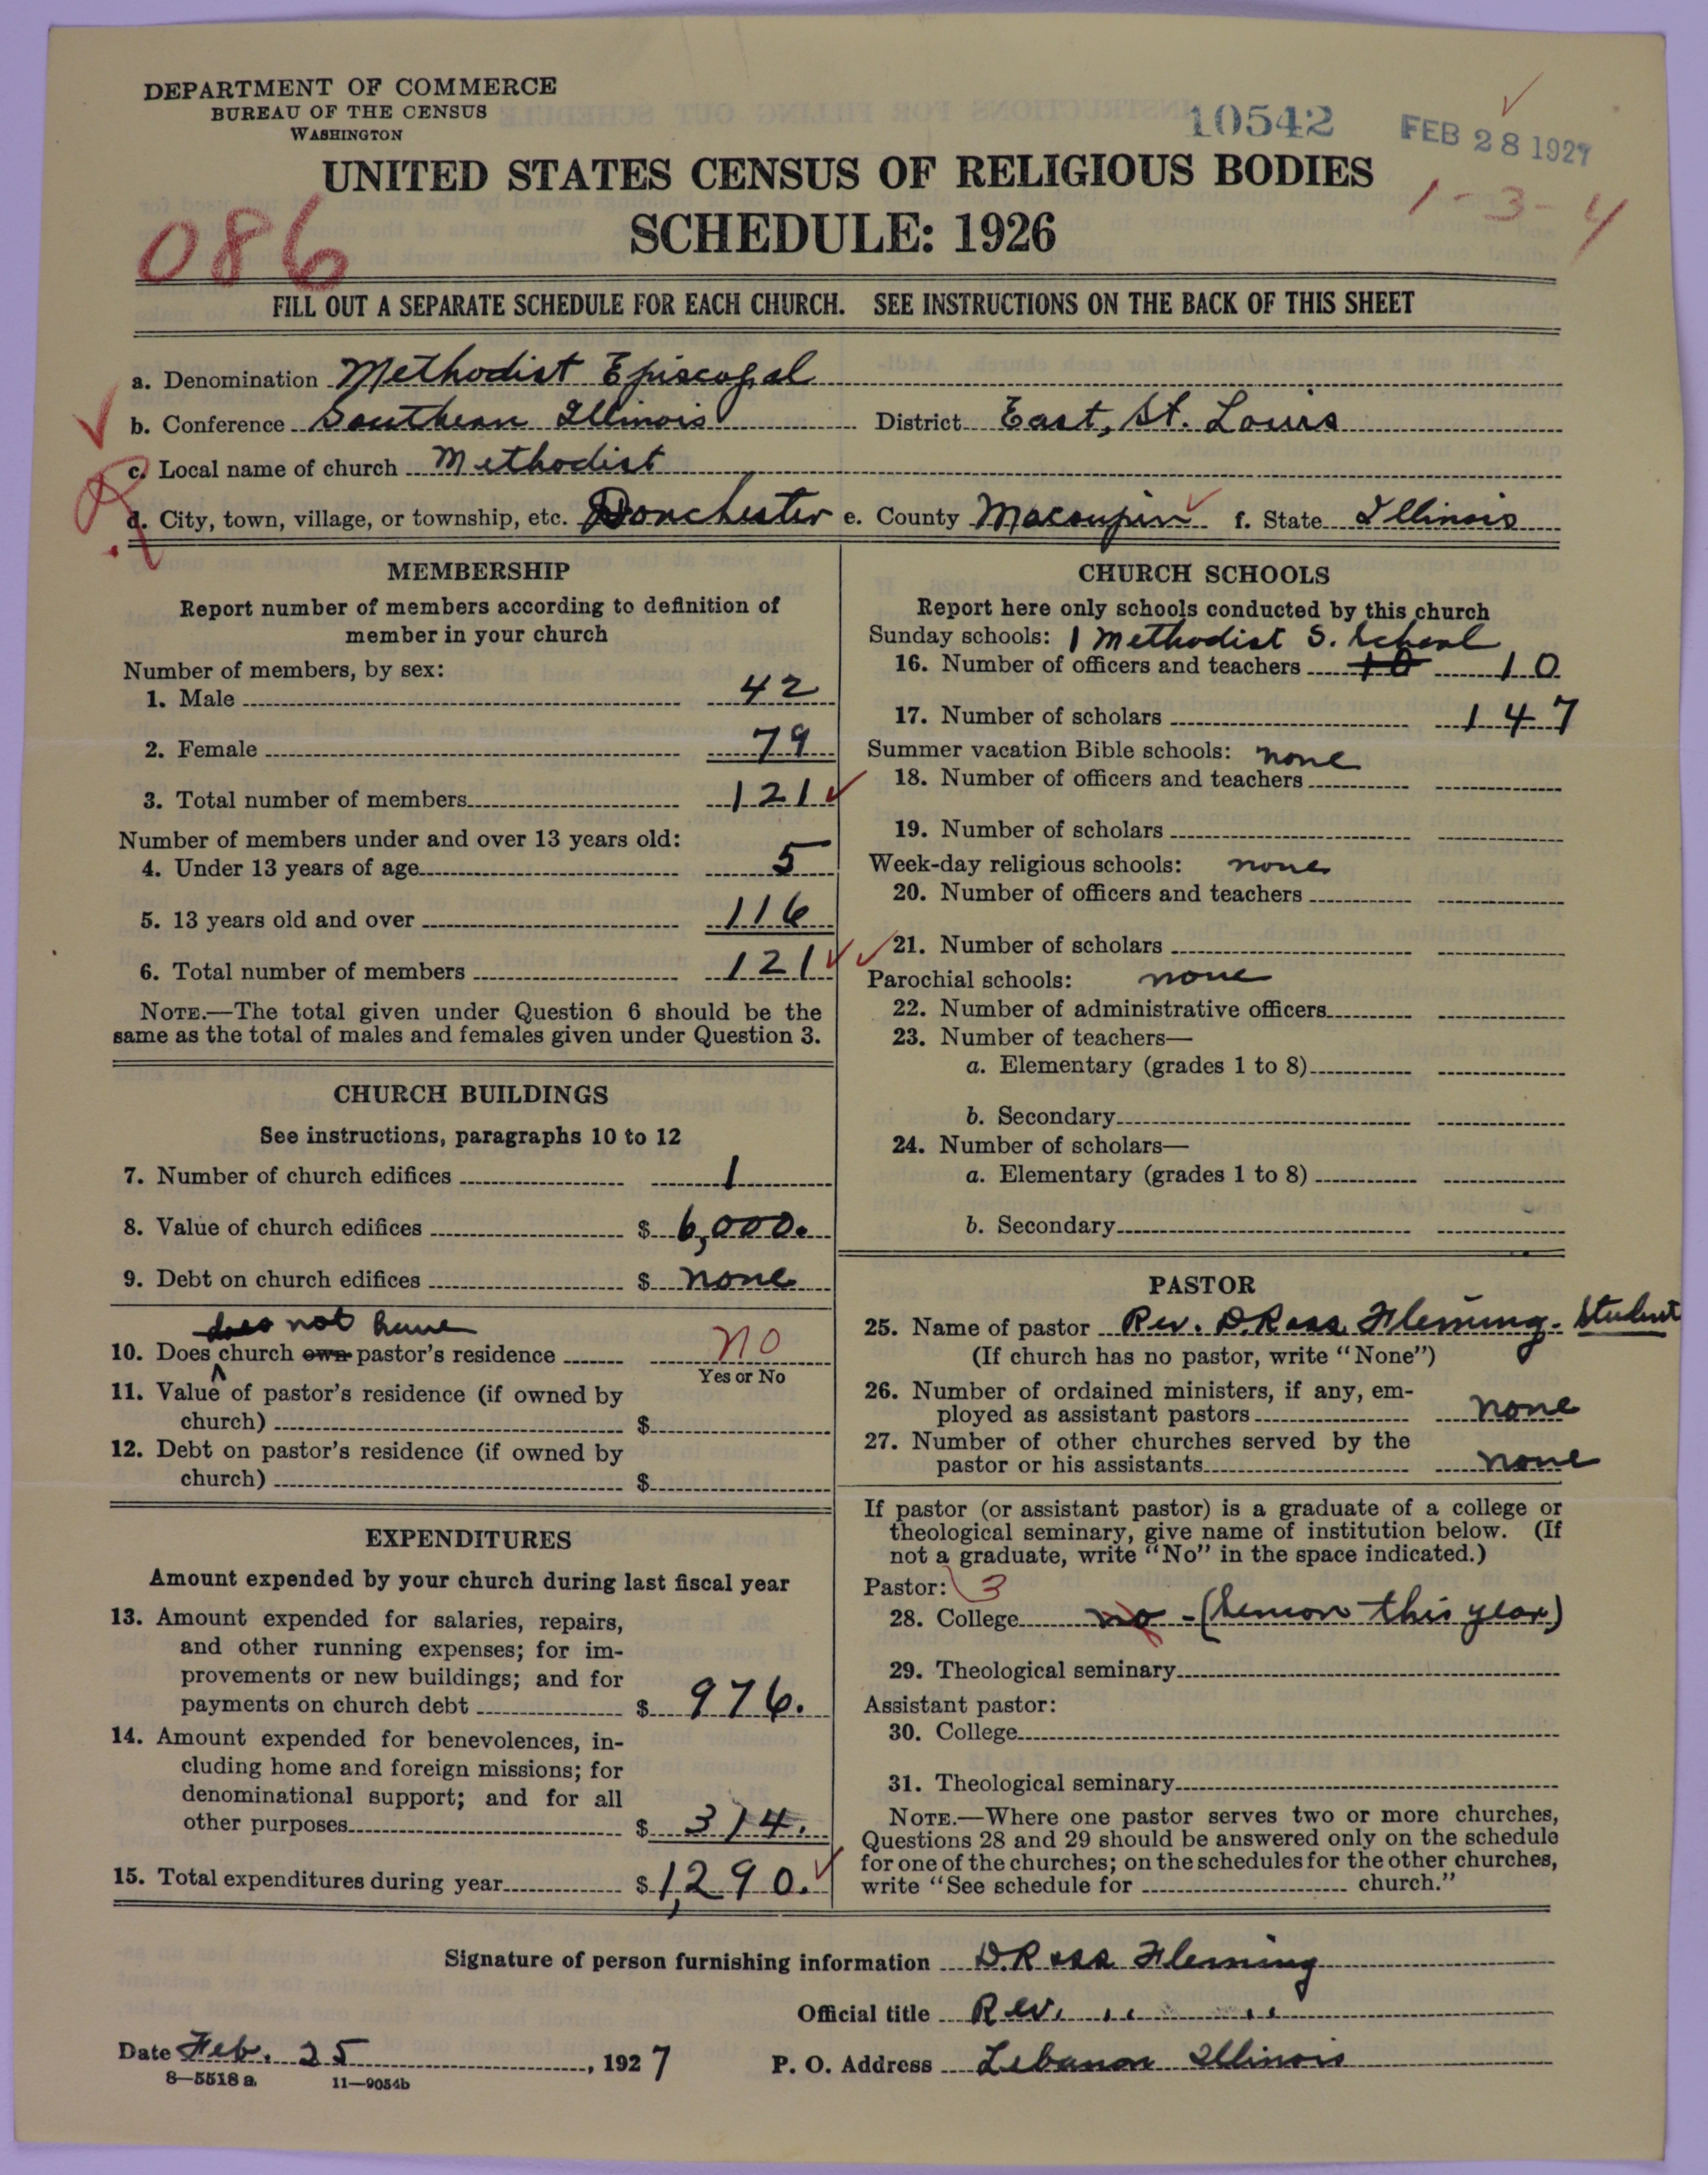 DEPARTMENT OF COMMERCE
BUREAU OF THE CENSUS
WASHINGTON
10542
FEB 28 1927
UNITED STATES CENSUS OF RELIGIOUS BODIES
1-3-4
086
SCHEDULE: 1926
FILL OUT A SEPARATE SCHEDULE FOR EACH CHURCH. SEE INSTRUCTIONS ON THE BACK OF THIS SHEET
a. Denomination Methodist Episcopal
b. Conference Southern Illinois District East, St. Louis
c. Local name of church Methodist
d. City, town, village, or township, etc. Dorchester e. County Macoupin f. State Illinois
MEMBERSHIP
Report number of members according to definition of
member in your church
Number of members, by sex:
1. Male 42
2. Female 79
3. Total number of members 121
Number of members under and over 13 years old:
4. Under 13 years of age 5
5. 13 years old and over 116
6. Total number of members 121
NOTE.—The total given under Question 6 should be the
same as the total of males and females given under Question 3.
CHURCH BUILDINGS
See instructions, paragraphs 10 to 12
7. Number of church edifices 1
8. Value of church edifices $ 6,000.
9. Debt on church edifices $ none
does not have
10. Does church own pastor's residence no
Yes or No
11. Value of pastor's residence (if owned by
church) $
12. Debt on pastor's residence (if owned by
church) $
EXPENDITURES
Amount expended by your church during last fiscal year
13. Amount expended for salaries, repairs,
and other running expenses; for im-
provements or new buildings; and for
payments on church debt $ 976.
14. Amount expended for benevolences, in-
cluding home and foreign missions; for
denominational support; and for all
other purposes $ 314.
15. Total expenditures during year $ 1,290.
CHURCH SCHOOLS
Report here only schools conducted by this church
Sunday schools: 1 Methodist S. School
16. Number of officers and teachers 10 10
17. Number of scholars 147
Summer vacation Bible schools: none
18. Number of officers and teachers
19. Number of scholars
Week-day religious schools: none
20. Number of officers and teachers
21. Number of scholars
Parochial schools: none
22. Number of administrative officers
23. Number of teachers—
a. Elementary (grades 1 to 8)
b. Secondary
24. Number of scholars—
a. Elementary (grades 1 to 8)
b. Secondary
PASTOR
25. Name of pastor Rev. D. Ross Fleming. Student
(If church has no pastor, write "None")
26. Number of ordained ministers, if any, em-
ployed as assistant pastors none
27. Number of other churches served by the
pastor or his assistants none
If pastor (or assistant pastor) is a graduate of a college or
theological seminary, give name of institution below. (If
not a graduate, write "No" in the space indicated.)
Pastor: 3
28. College no - (Senior this year)
29. Theological seminary
Assistant pastor:
30. College
31. Theological seminary
NOTE.—Where one pastor serves two or more churches,
Questions 28 and 29 should be answered only on the schedule
for one of the churches; on the schedules for the other churches,
write "See schedule for church."
Signature of person furnishing information D. Ross Fleming
Official title Rev. " "
Date Feb. 25, 1927 P. O. Address Lebanon Illinois
8—5518 a 11—9054b